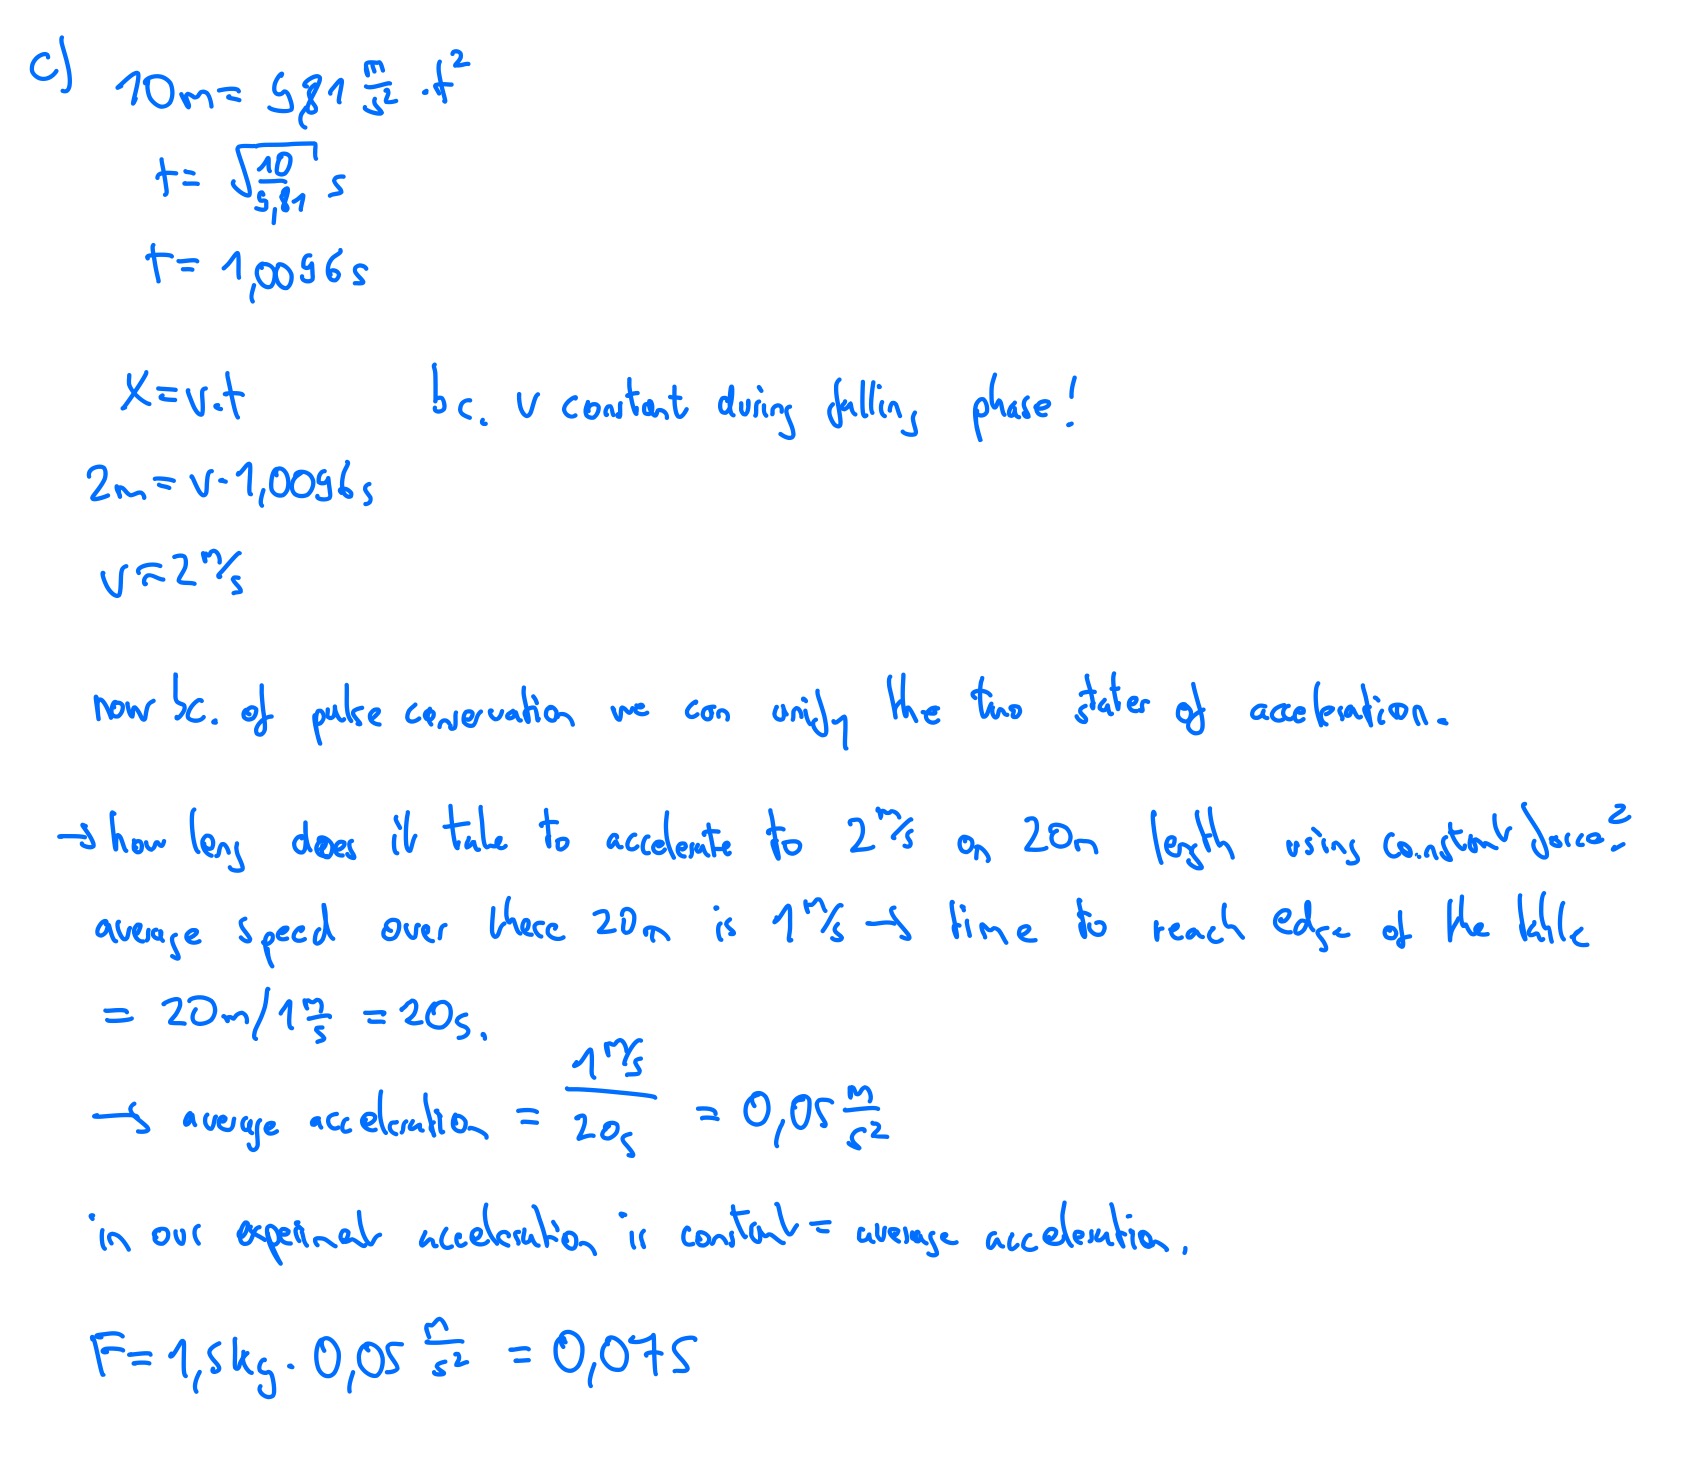 c) 10m = 9,81 m/s² · t²
t = √(10/9,81) s
t = 1,0096s
x = v·t bc. v constant during falling phase!
2m = v · 1,0096s
v ≈ 2 m/s
now bc. of pulse conservation we can unify the two states of acceleration.
→ how long does it take to accelerate to 2 m/s on 20m length using constant force?
average speed over these 20m is 1 m/s → time to reach edge of the table
= 20m/1 m/s = 20s.
→ average acceleration = 1 m/s / 20s = 0,05 m/s²
in our experiment acceleration is constant = average acceleration.
F = 1,5kg · 0,05 m/s² = 0,075